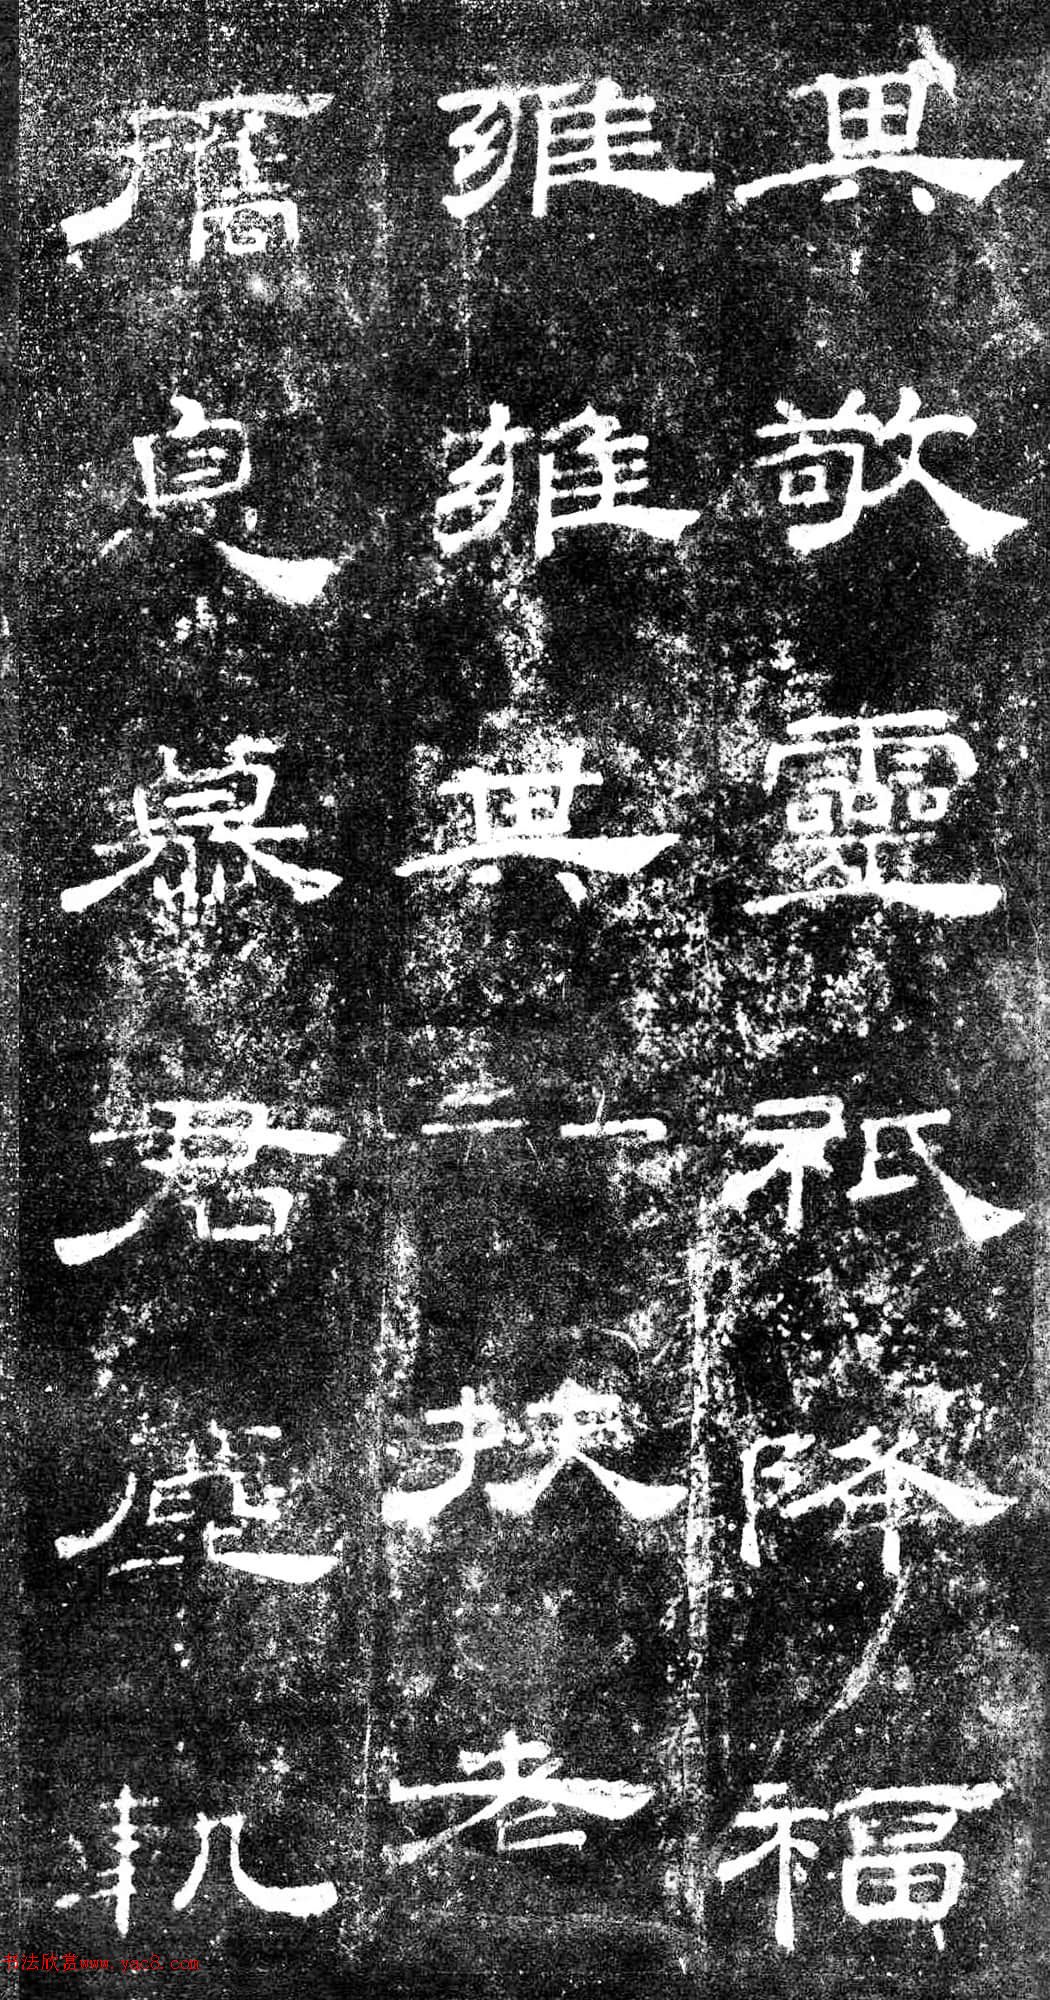 其敬靈祇降福
雍雍其二一扶老
攜息慕君處軌
书法欣赏www.yac8.com